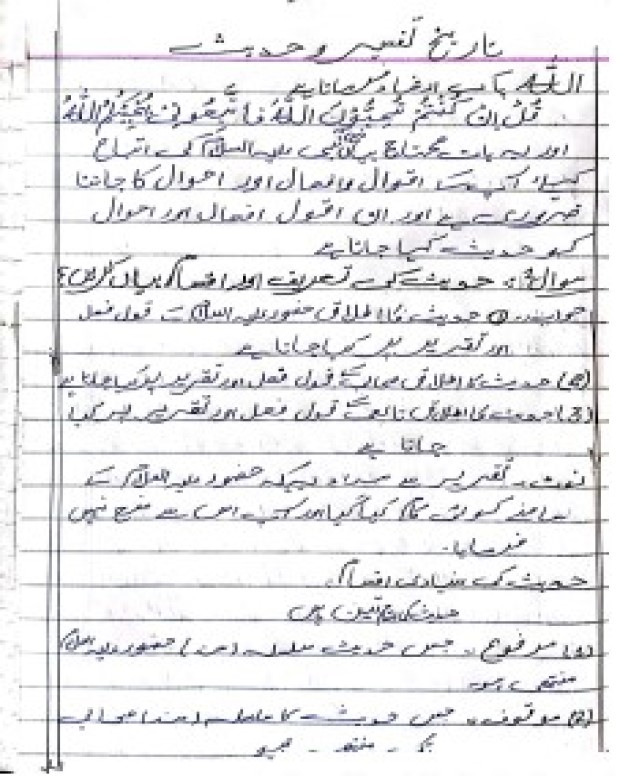 تاریخ تفسیر و حدیث
اللہ پاک ارشاد فرماتا ہے
قُلْ اِنْ كُنْتُمْ تُحِبُّوْنَ اللّٰهَ فَاتَّبِعُوْنِیْ یُحْبِبْكُمُ اللّٰهُ
اور یہ بات محتاج نبی علیہ السلام کی اتباع
کیلئے آپ کے اقوال و افعال اور احوال کا جاننا
ضروری ہے اور ان اقوال افعال اور احوال
کو حدیث کہا جاتا ہے
سوال: حدیث کی تعریف اور اقسام بیان کریں؟
جواب: ① حدیث کا اطلاق حضور علیہ السلام کے قول فعل
اور تقریر پر کیا جاتا ہے
(2) حدیث کا اطلاق صحابی کے قول فعل اور تقریر پر کیا جاتا ہے
(3) حدیث کا اطلاق تابعی کے قول فعل اور تقریر پر کیا
جاتا ہے
نوٹ۔ تقریر سے مراد یہ کہ حضور علیہ السلام کے
سامنے کوئی کام کیا گیا اور آپ نے اس سے منع نہیں
فرمایا۔
حدیث کی بنیادی اقسام
حدیث کی تین ہیں
(1) مرفوع۔ جس حدیث سلسلہ (سند) حضور علیہ السلام
منتہی ہو
(2) موقوف۔ جس حدیث کا سلسلہ (سند) صحابی
تک۔ منتہی۔ ہو